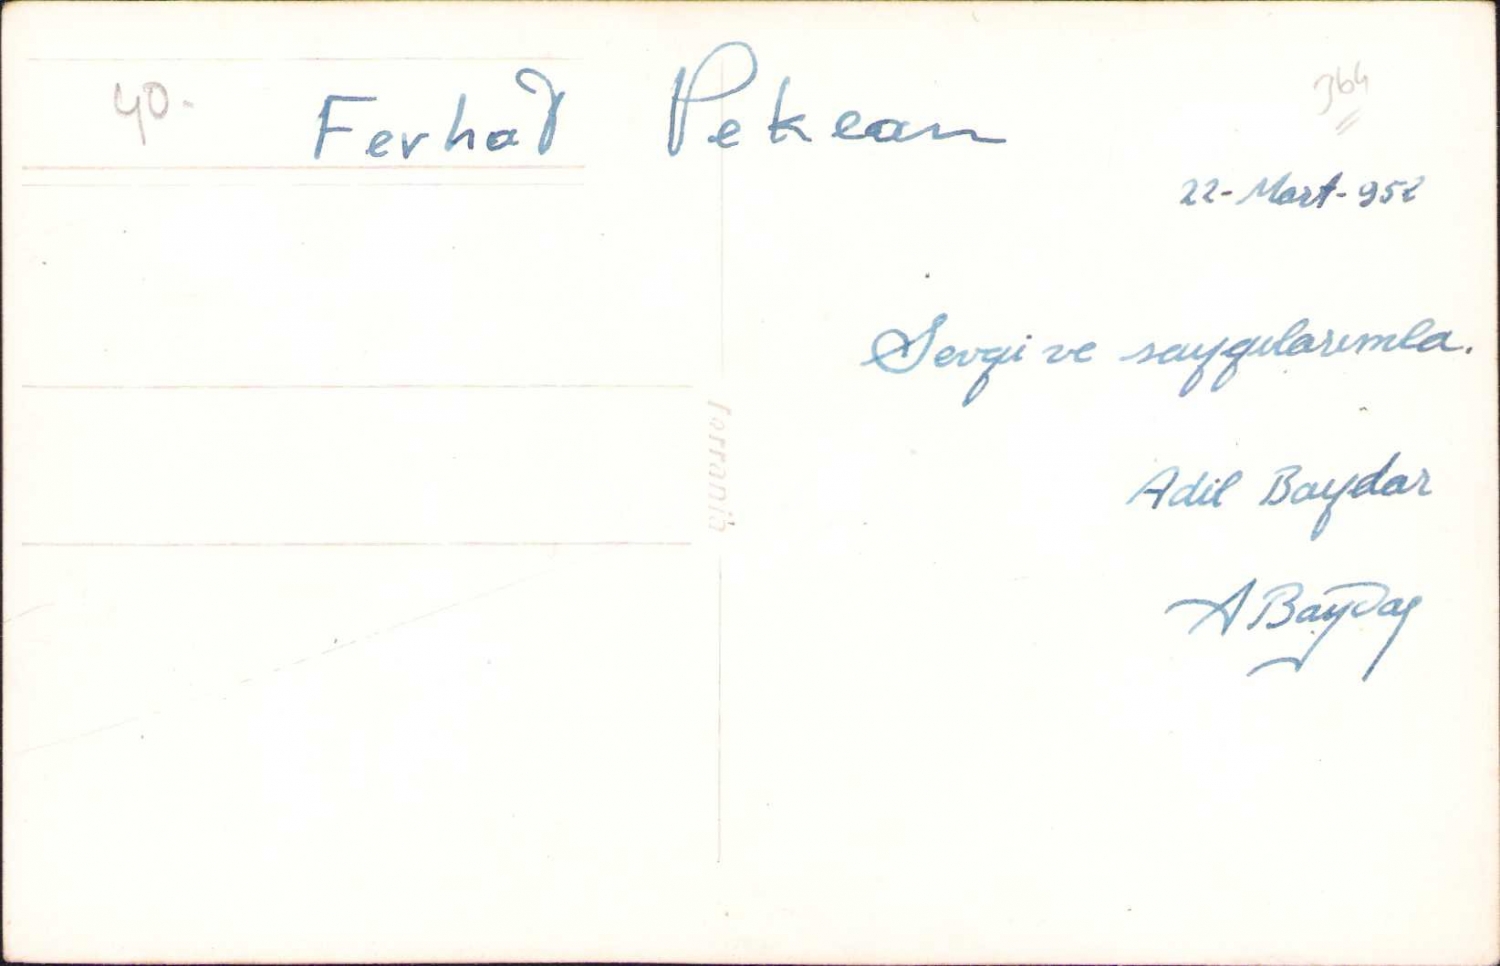 40.
364
Ferhad Pekcan
22-Mart-952
Sevgi ve saygılarımla.
Ferrania
Adil Baydar
ABaydar